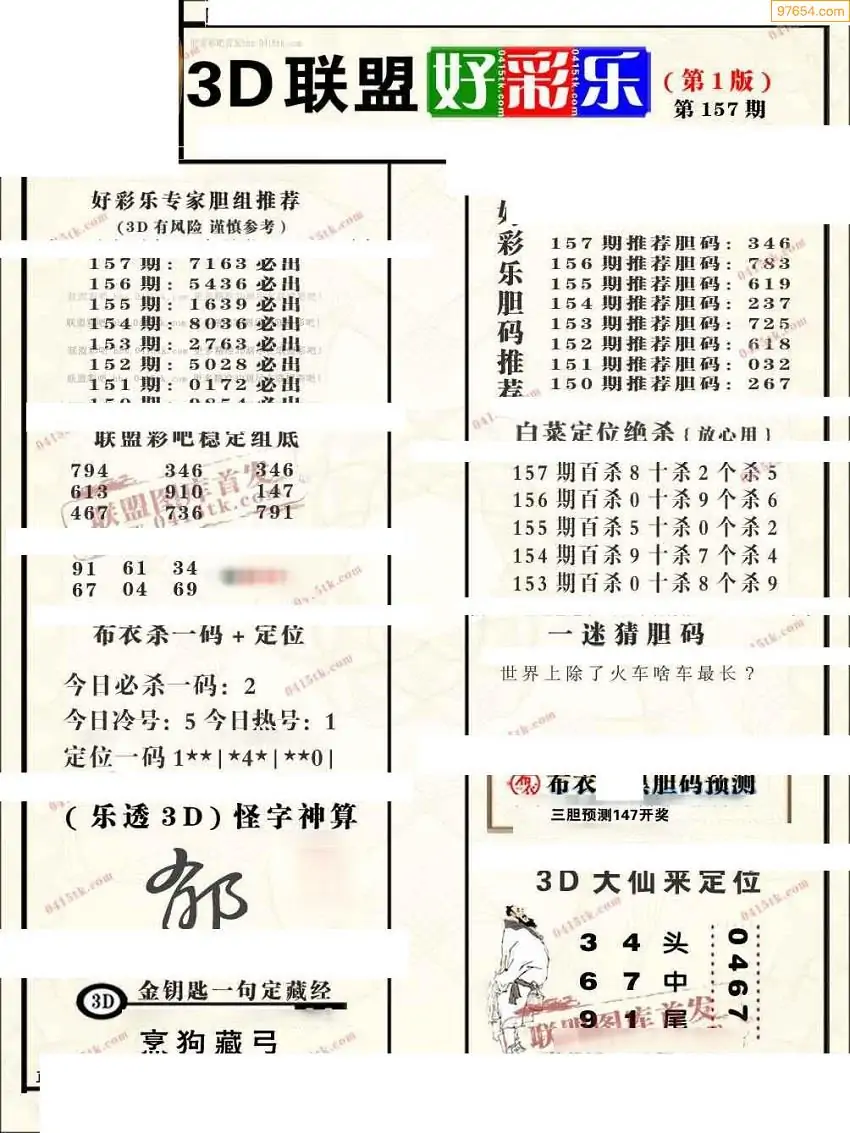 97654.com
3D联盟好彩乐(第1版)
第157期
好彩乐专家胆组推荐
(3D有风险 谨慎参考)
157期:7163必出
156期:5436必出
155期:1639必出
154期:8036必出
153期:2763必出
152期:5028必出
151期:0172必出
联盟彩吧稳定组底
794 346 346
613 910 147
467 736 791
91 61 34
67 04 69
布衣杀一码+定位
今日必杀一码:2
今日冷号:5今日热号:1
定位一码1**|*4*|**0|
(乐透3D)怪字神算
郁
3D 金钥匙一句定藏经
烹狗藏弓
彩乐胆码推荐
157期推荐胆码:346
156期推荐胆码:783
155期推荐胆码:619
154期推荐胆码:237
153期推荐胆码:725
152期推荐胆码:618
151期推荐胆码:032
150期推荐胆码:267
白菜定位绝杀{放心用}
157期百杀8十杀2个杀5
156期百杀0十杀9个杀6
155期百杀5十杀0个杀2
154期百杀9十杀7个杀4
153期百杀0十杀8个杀9
一迷猜胆码
世界上除了火车啥车最长?
布衣 胆码预测
三胆预测147开奖
3D大仙来定位
3 4 头
6 7 中
9 1 尾
0467
联盟图库首发
0415tk.com